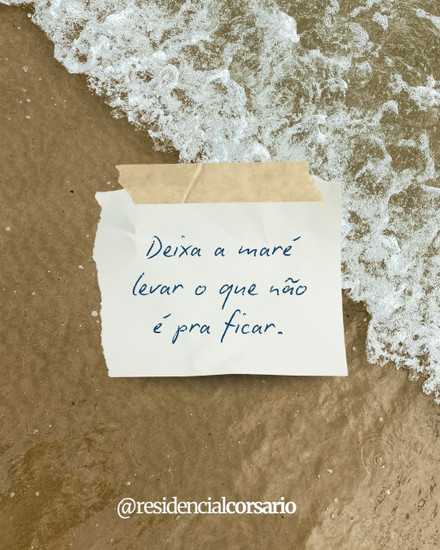 Deixa a maré
levar o que não
é pra ficar.
@residencialcorsario